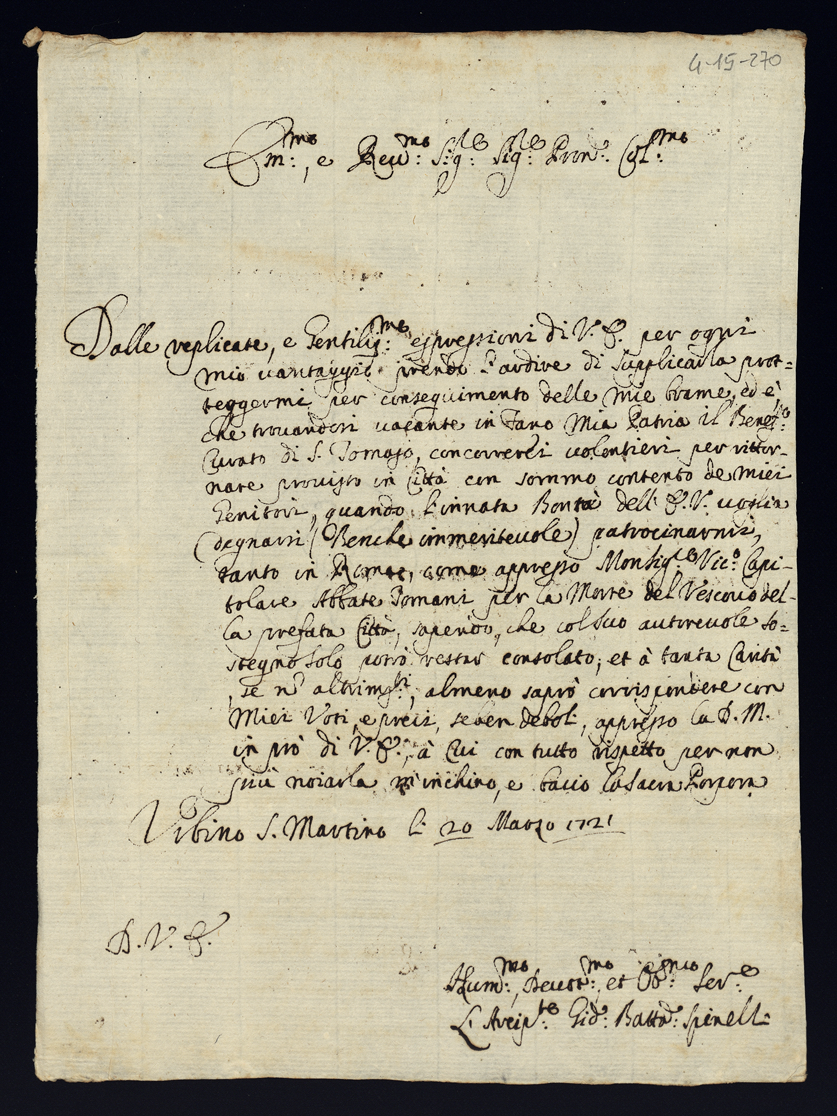 4-15-270
Em:mo, e Reu:mo Sig:re Sig:re Pron: Col:mo
Dalle replicate, e Gentiliss:me espressioni di V. E. per ogni
mio vantaggio prendo l'ardire di supplicarla prot=
teggermi per conseguimento delle mie brame, ed è,
che trouandosi uacante in Fano mia Patria il Benef:o
Curato di S. Tomaso, concorrerei uolontieri per rittor-
nare prouisto in Città con sommo contento de miei
Genitori, quando l'innata Bontà dell' E. V. uoglia
degnarsi (Benche immeriteuole) patrocinarmi,
tanto in Roma, come appresso Monsig:re Vic:o Capi-
tolare Abbate Tomani per la Morte del Vescouo del-
la prefata Città, sapendo, che col suo autoreuole so=
stegno solo potrò restar consolato; et à tanta Carità
, se n: altrim:ti, almeno saprò corrispondere con
Miei Voti, e preci, se ben deboli, appresso la D. M.
in prò di V. E., à Cui con tutto rispetto per non
più noiarla m'inchino, e bacio la Sacra Porpora
Vrbino S. Martino li 20 Marzo 1721
D. V. E.
Hum:mo, Deuot:mo, et Ob:mo Ser:e
L'Arcip:te Gio: Batta: Spinelli